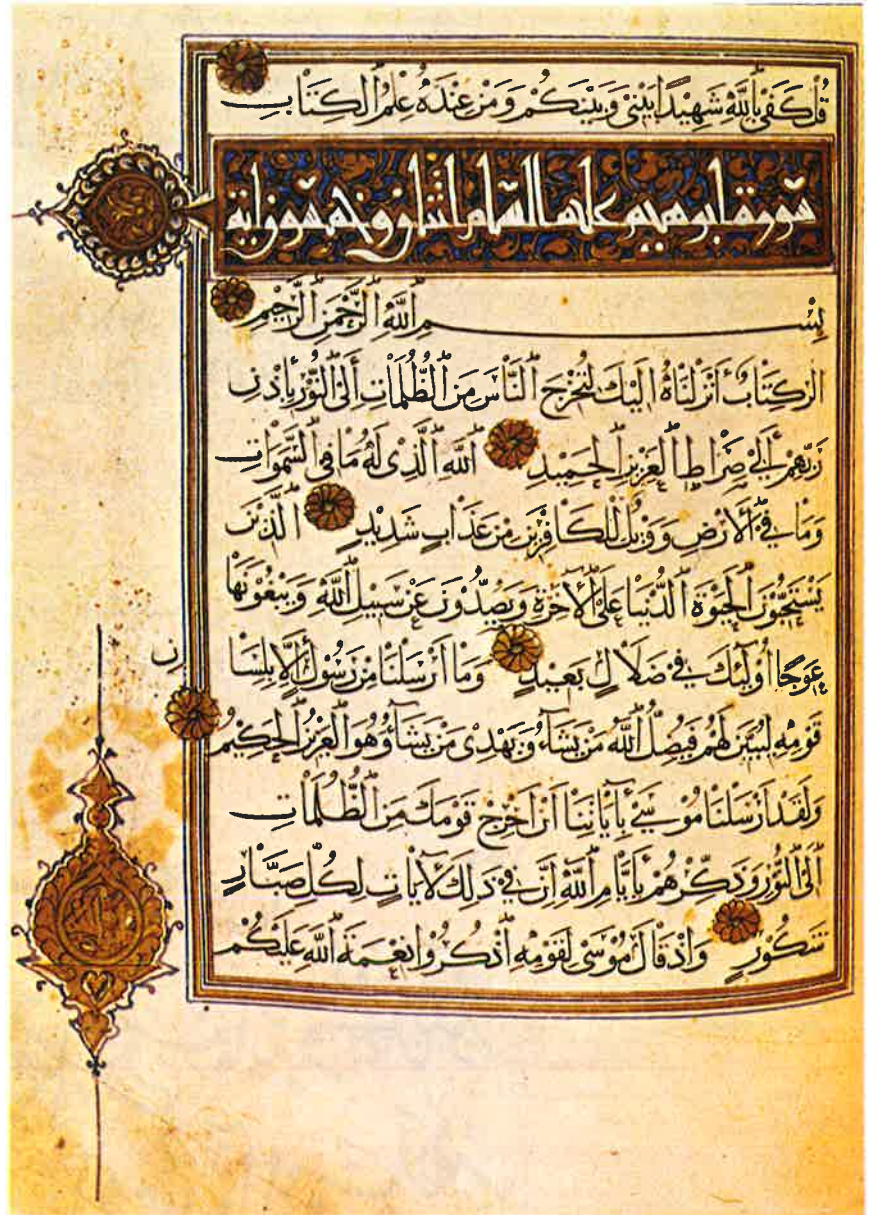 قُلْ كَفَىٰ بِاللَّهِ شَهِيدًا بَيْنِي وَبَيْنَكُمْ وَمَنْ عِنْدَهُ عِلْمُ الْكِتَابِ
سورة ابرهيم عليه السلام اثنتان وخمسون اية
بِسْمِ اللَّهِ الرَّحْمَنِ الرَّحِيمِ
الر كِتَابٌ أَنْزَلْنَاهُ إِلَيْكَ لِتُخْرِجَ النَّاسَ مِنَ الظُّلُمَاتِ إِلَى النُّورِ بِإِذْنِ
رَبِّهِمْ إِلَىٰ صِرَاطِ الْعَزِيزِ الْحَمِيدِ اللَّهِ الَّذِي لَهُ مَا فِي السَّمَوَاتِ
وَمَا فِي الْأَرْضِ وَوَيْلٌ لِلْكَافِرِينَ مِنْ عَذَابٍ شَدِيدٍ الَّذِينَ
يَسْتَحِبُّونَ الْحَيَوٰةَ الدُّنْيَا عَلَى الْآخِرَةِ وَيَصُدُّونَ عَنْ سَبِيلِ اللَّهِ وَيَبْغُونَهَا
عِوَجًا أُولَٰئِكَ فِي ضَلَالٍ بَعِيدٍ وَمَا أَرْسَلْنَا مِنْ رَسُولٍ إِلَّا بِلِسَانِ
قَوْمِهِ لِيُبَيِّنَ لَهُمْ فَيُضِلُّ اللَّهُ مَنْ يَشَاءُ وَيَهْدِي مَنْ يَشَاءُ وَهُوَ الْعَزِيزُ الْحَكِيمُ
وَلَقَدْ أَرْسَلْنَا مُوسَىٰ بِآيَاتِنَا أَنْ أَخْرِجْ قَوْمَكَ مِنَ الظُّلُمَاتِ
إِلَى النُّورِ وَذَكِّرْهُمْ بِأَيَّامِ اللَّهِ إِنَّ فِي ذَلِكَ لَآيَاتٍ لِكُلِّ صَبَّارٍ
شَكُورٍ وَإِذْ قَالَ مُوسَىٰ لِقَوْمِهِ اذْكُرُوا نِعْمَةَ اللَّهِ عَلَيْكُمْ